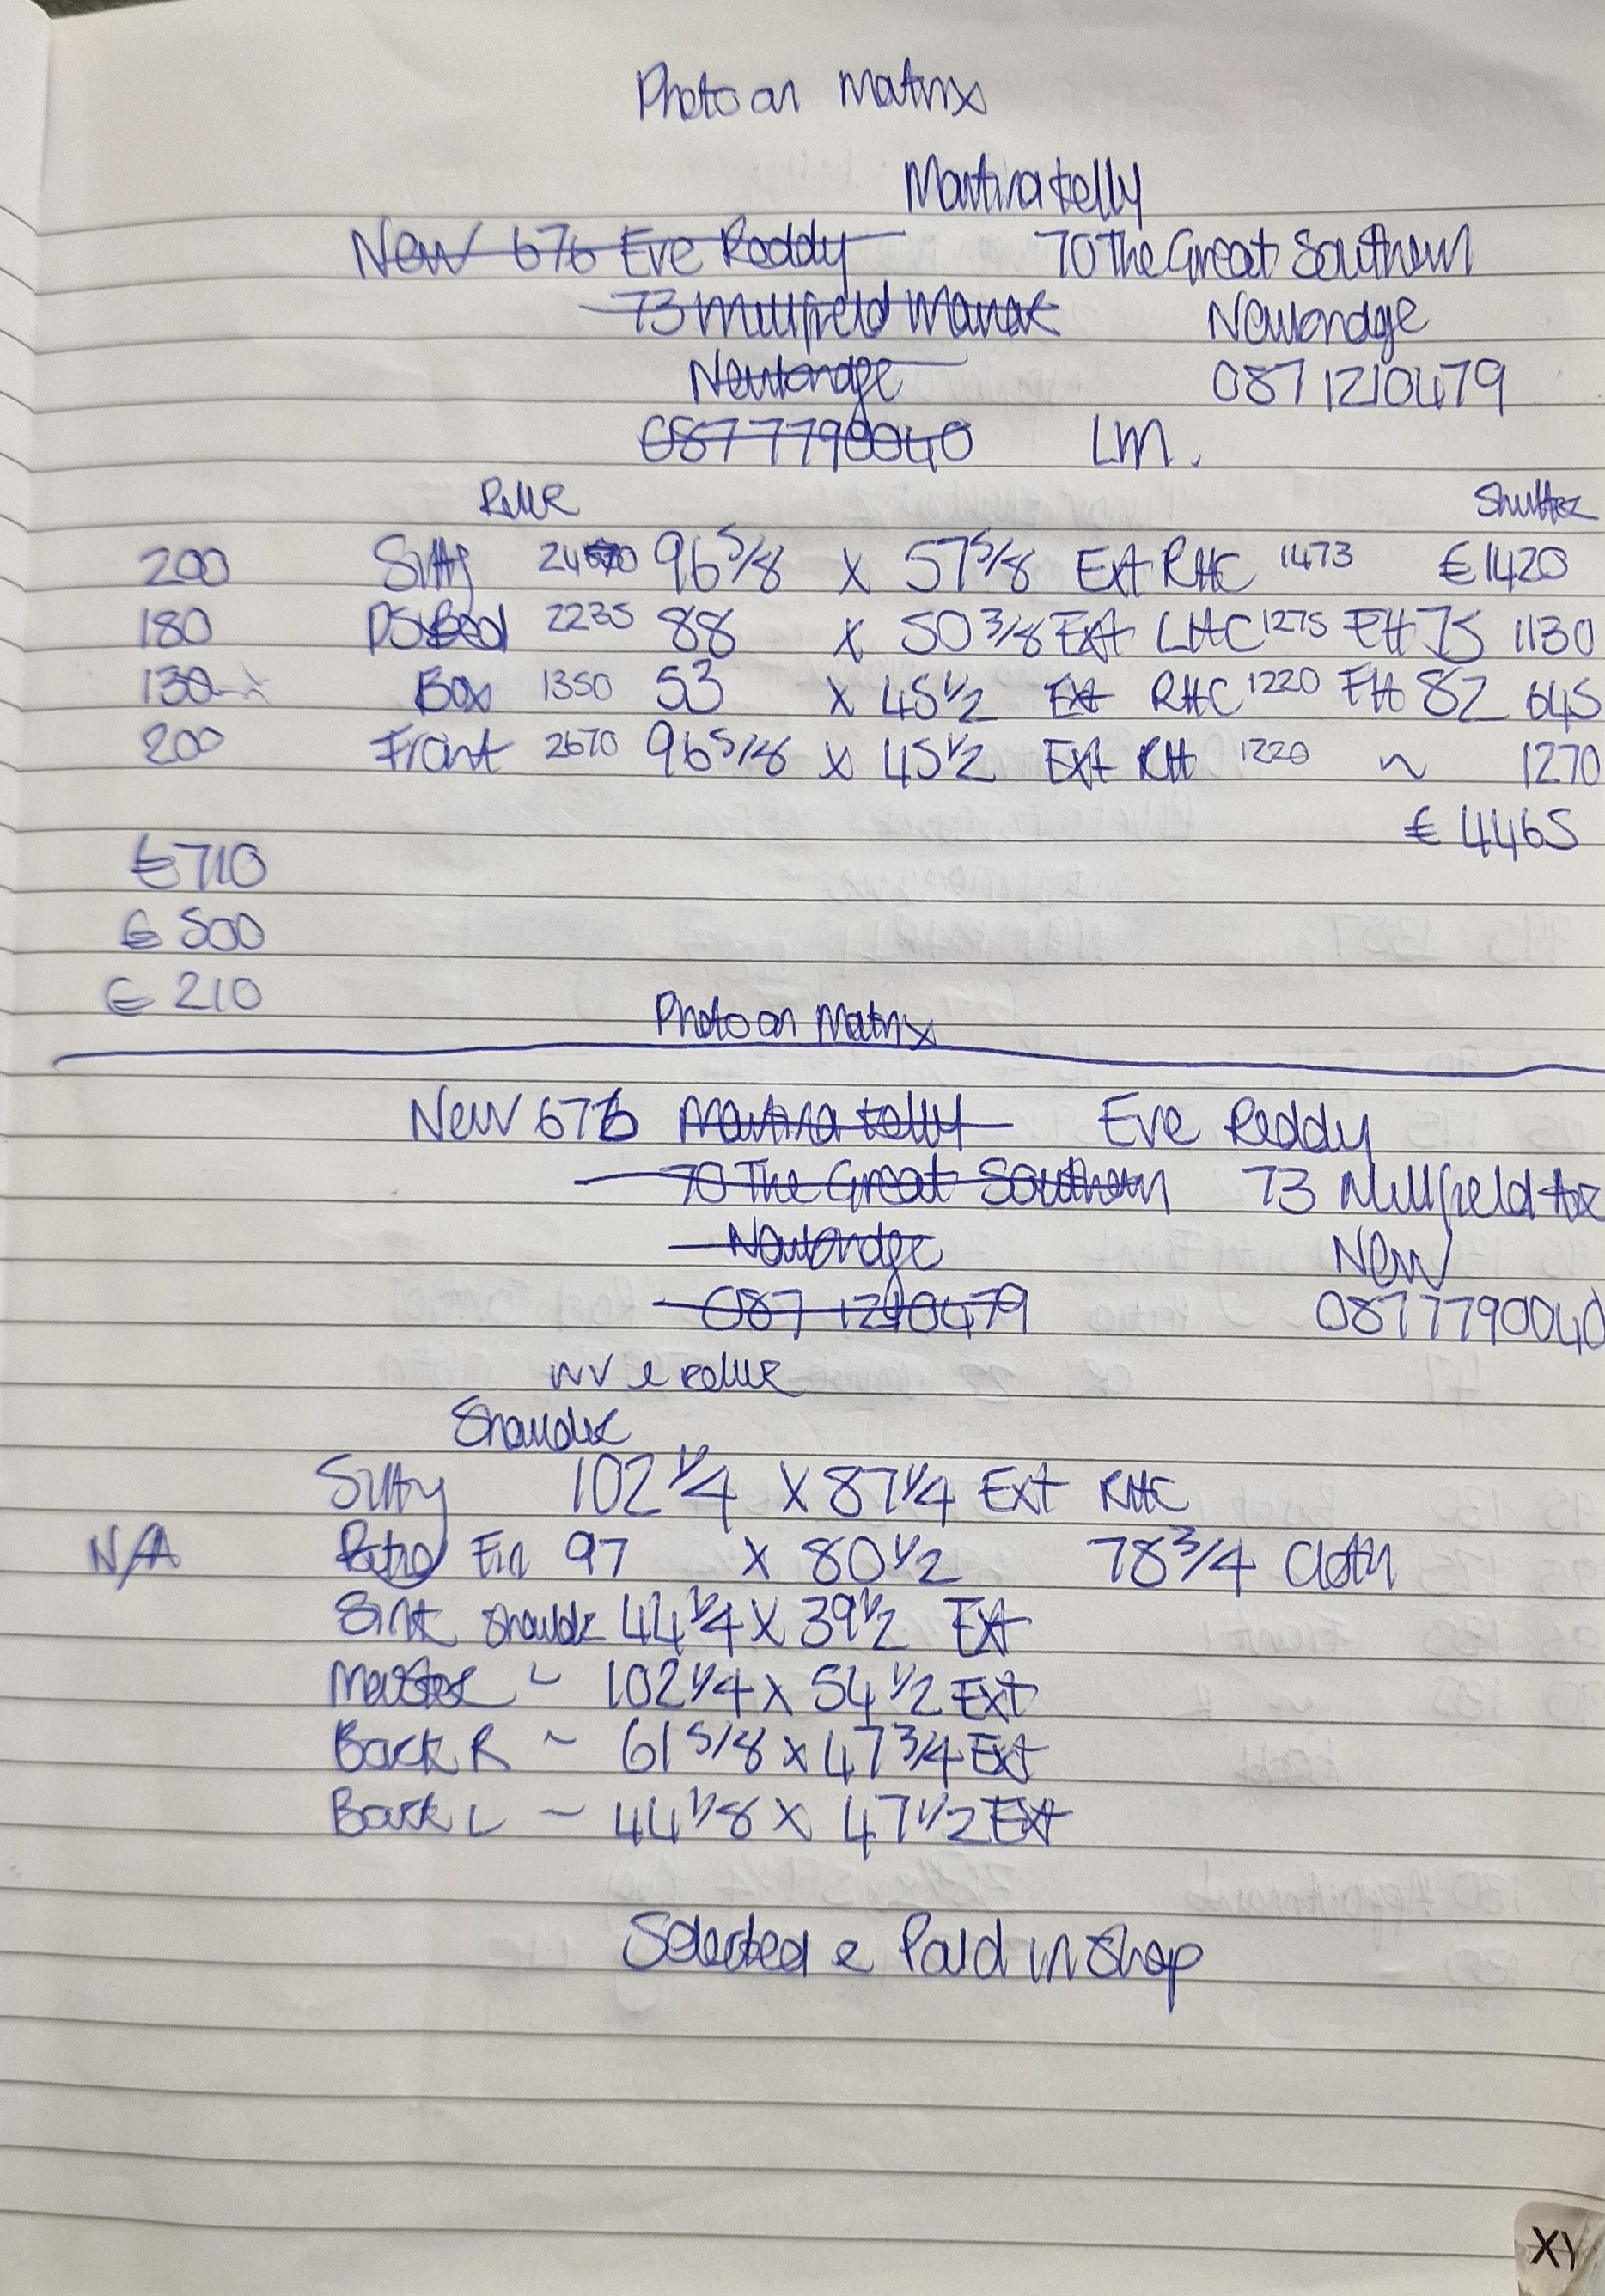 Photo on Matrix
Martina Kelly
New 676 Eve Reddy 70 The Great Southern
73 Millfield Manor Newbridge
Newbridge 087 1210479
087 7790040 LM.
Roller Shutter
200 Sitty 2470 96 5/8 x 57 5/8 Ext RHC 1473 € 1420
180 DS Bed 2235 88 x 50 3/8 Ext LHC 1275 FH 75 1130
130 Box 1350 53 x 45 1/2 Ext RHC 1220 FH 82 645
200 Front 2670 96 5/8 x 45 1/2 Ext RH 1220 ~ 1270
€ 4465
€ 710
€ 500
€ 210
Photo on Matrix
New 676 Martina Kelly Eve Reddy
70 The Great Southern 73 Millfield
Newbridge New
087 1210479 087 7790040
WV & roller
Sitty 102 1/4 x 87 1/4 Ext RHC
N/A Patio Fin 97 x 80 1/2 78 3/4 Cloth
Sink 44 1/4 x 39 1/2 Ext
Master ~ 102 1/4 x 54 1/2 Ext
Back R ~ 61 5/8 x 47 3/4 Ext
Back L ~ 44 1/8 x 47 1/2 Ext
Selected & Paid in Shop
XY